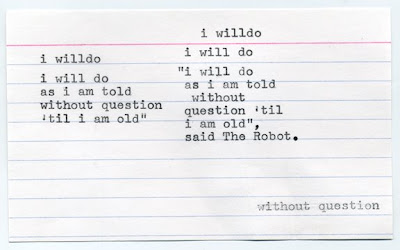 i willdo
i will do
as i am told
without question
'til i am old"
i willdo
i will do
"i will do
as i am told
without
question 'til
i am old",
said The Robot.
without question